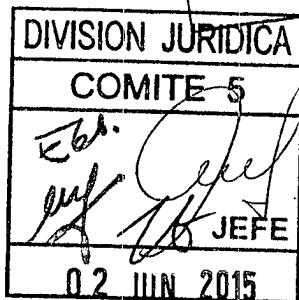 DIVISION JURIDICA
COMITE 5
JEFE
02 JUN 2015